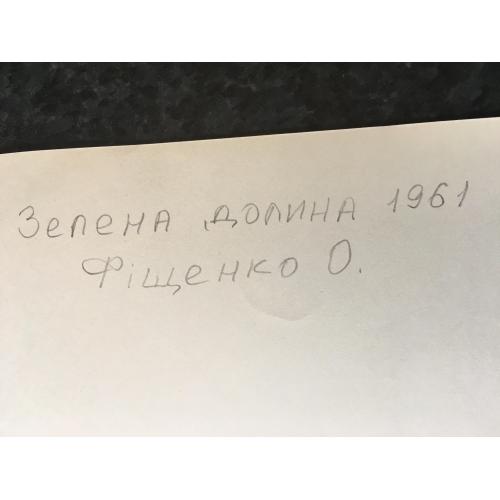 Зелена долина 1961
Фіщенко О.